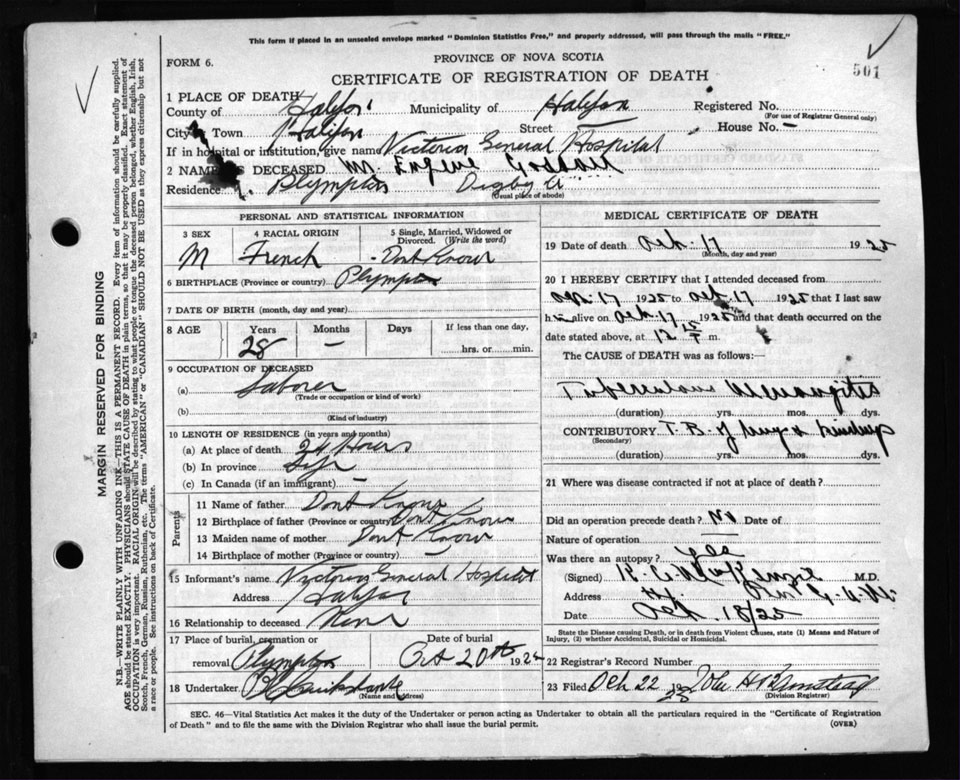 This form if placed in an unsealed envelope marked "Dominion Statistics Free," and properly addressed, will pass through the mails "FREE."
PROVINCE OF NOVA SCOTIA
FORM 6.
501
CERTIFICATE OF REGISTRATION OF DEATH
1 PLACE OF DEATH
County of Halifax Municipality of Halifax Registered No.
(For use of Registrar General only)
City or Town Halifax Street — House No. —
If in hospital or institution, give name Victoria General Hospital
2 NAME OF DECEASED Mr. Eugene
Residence Plympton Digby Co
(Usual place of abode)
PERSONAL AND STATISTICAL INFORMATION
3 SEX 4 RACIAL ORIGIN 5 Single, Married, Widowed or Divorced. (Write the word)
M French Dont Know
6 BIRTHPLACE (Province or country) Plympton
7 DATE OF BIRTH (month, day and year)
8 AGE Years Months Days If less than one day,
28 — hrs. or min.
9 OCCUPATION OF DECEASED
(a) Laborer
(Trade or occupation or kind of work)
(b)
(Kind of industry)
10 LENGTH OF RESIDENCE (in years and months)
(a) At place of death 24 Hours
(b) In province Life
(c) In Canada (if an immigrant) —
Parents
11 Name of father Dont Know
12 Birthplace of father (Province or country) Dont Know
13 Maiden name of mother Dont Know
14 Birthplace of mother (Province or country) —
15 Informant's name Victoria General Hospital
Address Halifax
16 Relationship to deceased None
17 Place of burial, cremation or removal Plympton Date of burial Oct 20th 1925
18 Undertaker
(Name and address)
MEDICAL CERTIFICATE OF DEATH
19 Date of death Oct. 17 1925
(Month, day and year)
20 I HEREBY CERTIFY that I attended deceased from
Oct. 17 1925 to Oct. 17 1925 that I last saw
him alive on Oct. 17 1925 and that death occurred on the
date stated above, at 12 15 m.
The CAUSE OF DEATH was as follows:
Tuberculous Meningitis
(duration) yrs. mos. dys.
CONTRIBUTORY T. B. of lung & kidneys
(Secondary)
(duration) yrs. mos. dys.
21 Where was disease contracted if not at place of death?
Did an operation precede death? No Date of
Nature of operation
Was there an autopsy? yes
(Signed) MacKenzie M.D.
Address
Date Oct. 18/25
State the Disease causing Death, or in death from Violent Causes, state (1) Means and Nature of Injury, (2) whether Accidental, Suicidal or Homicidal.
22 Registrar's Record Number
23 Filed Oct 22 1925 John H
(Division Registrar)
SEC. 46—Vital Statistics Act makes it the duty of the Undertaker or person acting as Undertaker to obtain all the particulars required in the "Certificate of Registration
of Death" and to file the same with the Division Registrar who shall issue the burial permit. (OVER)
MARGIN RESERVED FOR BINDING
N.B.—WRITE PLAINLY WITH UNFADING INK—THIS IS A PERMANENT RECORD. Every item of information should be carefully supplied.
AGE should be stated EXACTLY. PHYSICIANS should STATE CAUSE OF DEATH in plain terms, so that it may be properly classified. Exact statement of
OCCUPATION is very important. RACIAL ORIGIN will be described by stating to what people or tongue the deceased person belonged, whether English, Irish,
Scotch, French, German, Russian, Ruthenian, etc. The terms "AMERICAN" or "CANADIAN" SHOULD NOT BE USED as they express citizenship but not
a race or people. See instructions on back of Certificate.